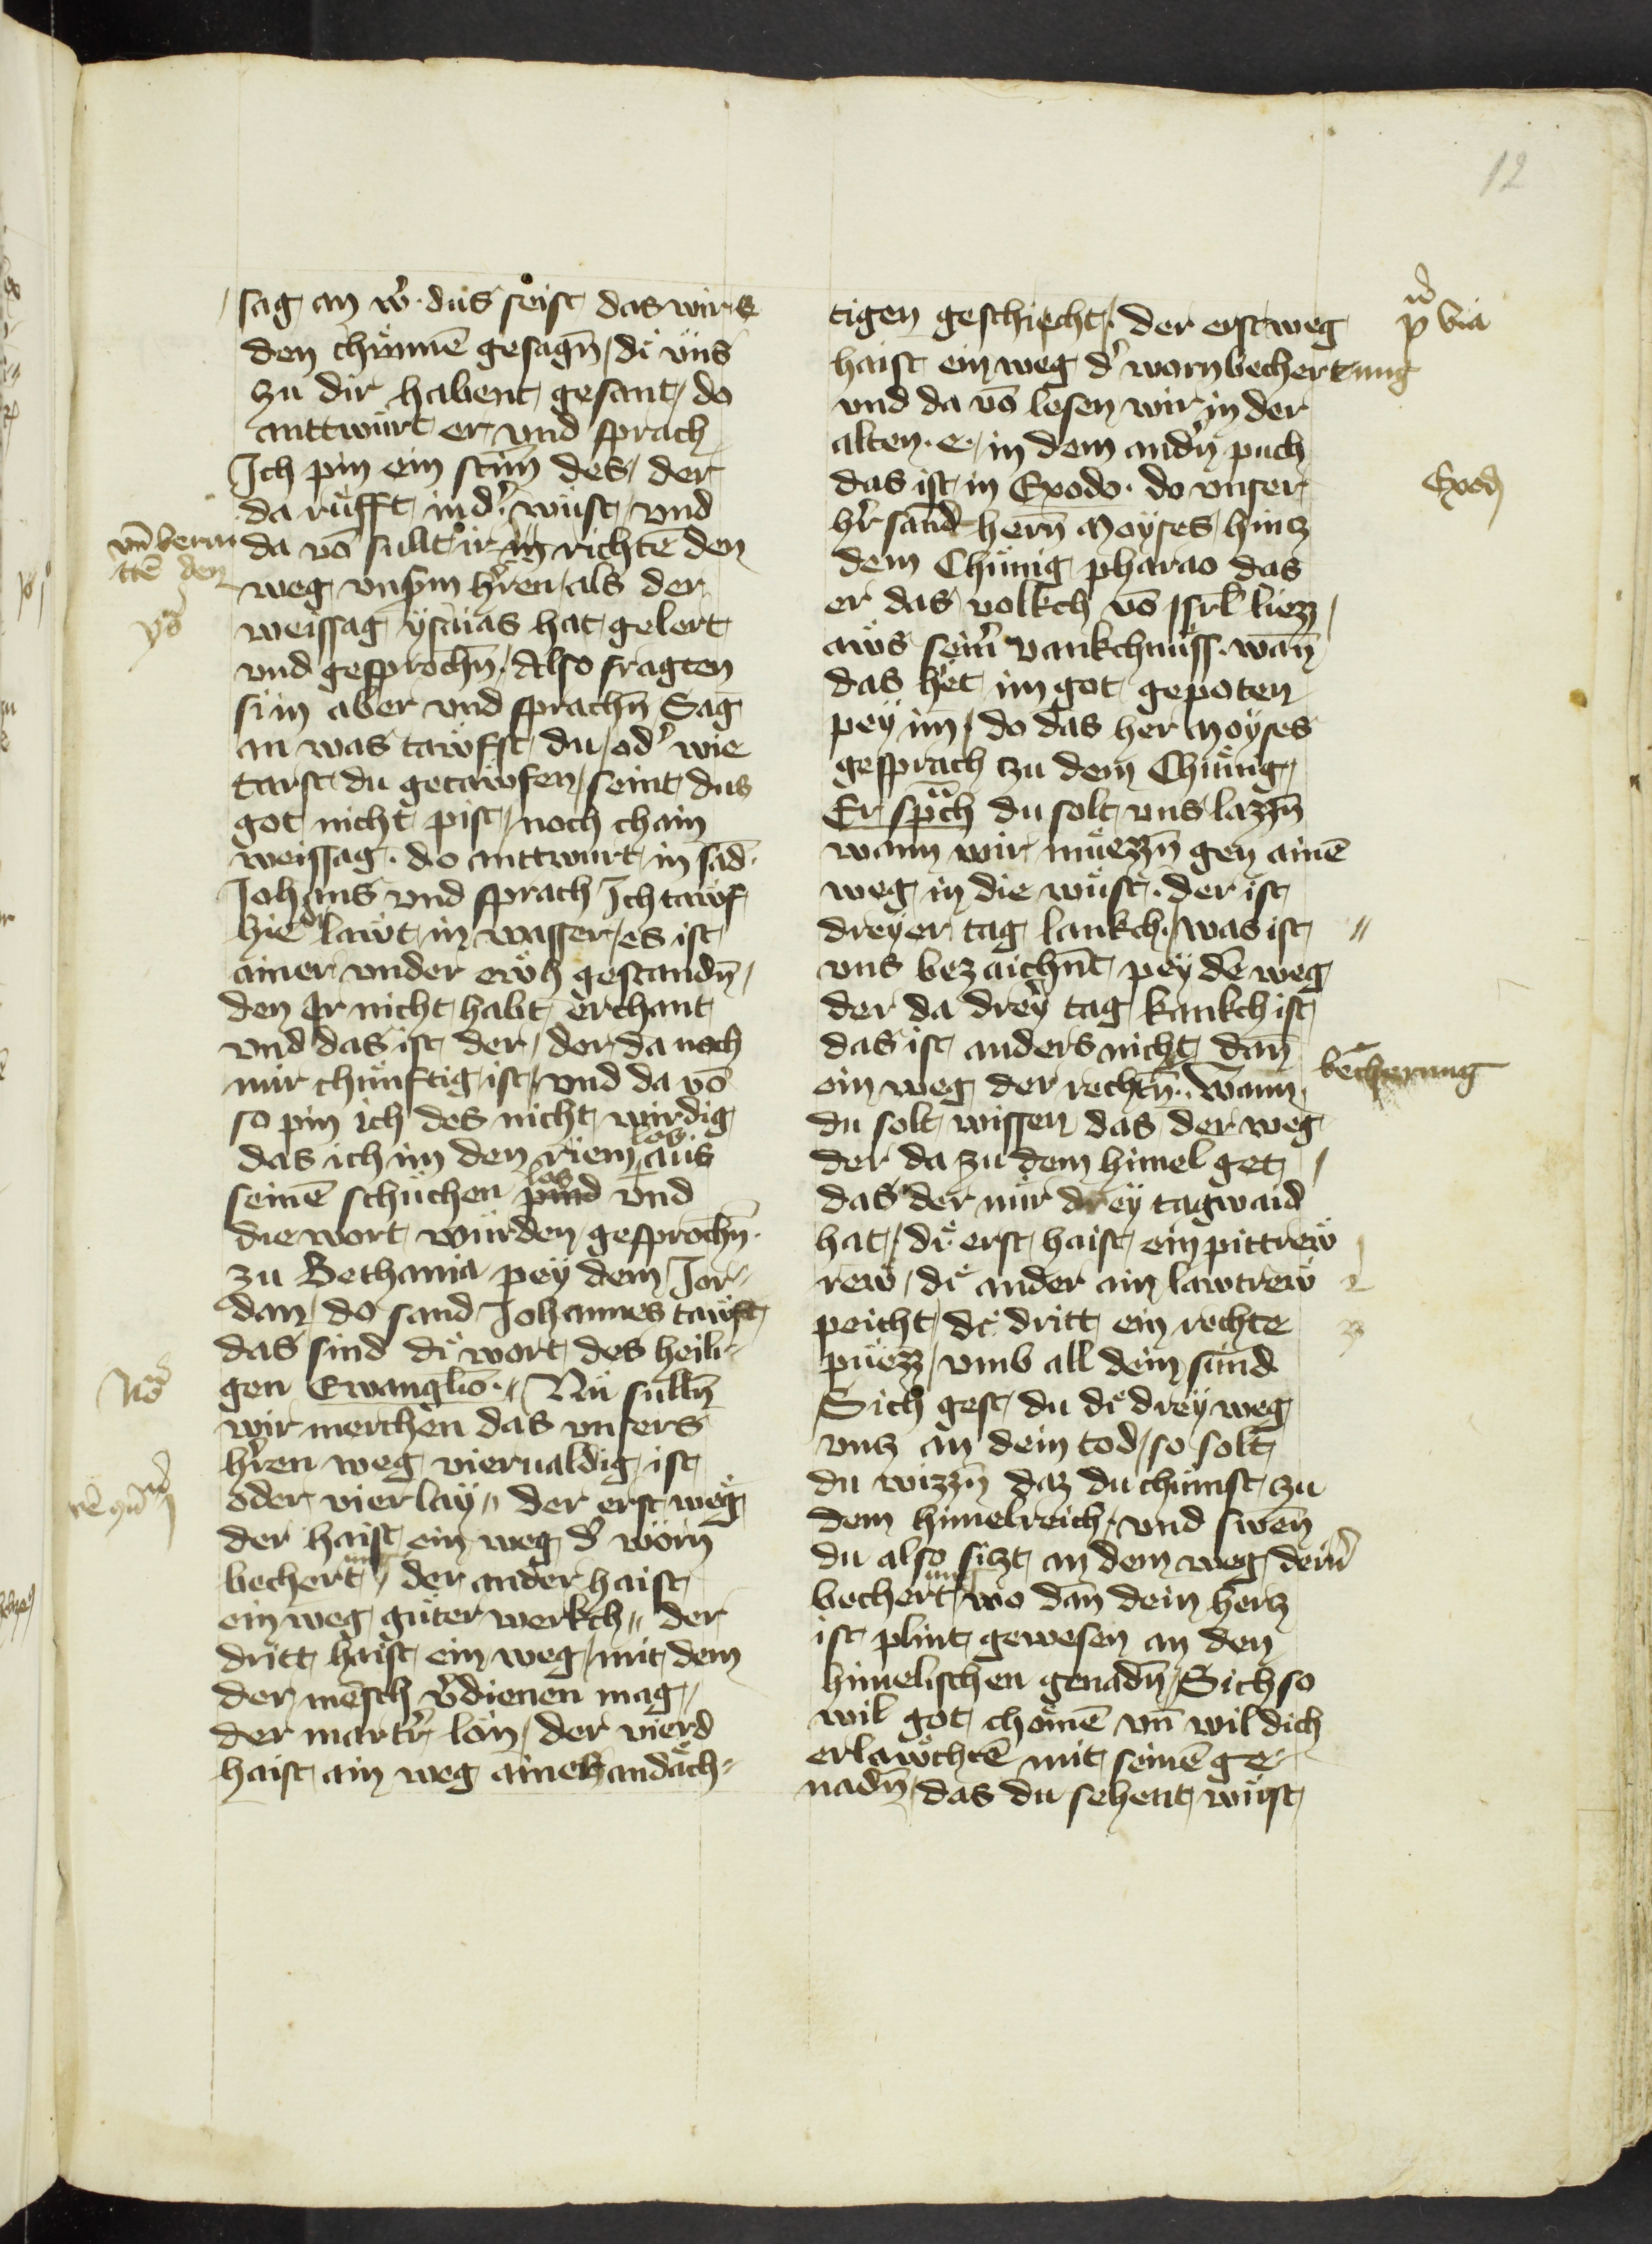 12
sag an wͤ · dus seist das wirs
den chünnē gesagn̄ / di uns
zu dir habent gesant / do
anttwürt er vnd sprach
Ich pin ein stim̄ des / der
da rüfft in dˀ wüst / vnd
da vō sullt ir in richtē den
weg vnsˀm hˀren / als der
weissag ysaias hat gelert
vnd gesprochn̄ / Also fragten
si in aber vnd sprachn̄ Sag
an was tawfst du / odˀ wie
tarst du getawfen / seint dus
got nicht pist / noch chain
weissag · do anttwurt in sād
Johans vnd sprach Ich tawf
hie lawt in wasser / es ist
ainer vnder ewh gestandn̄ /
den Ir nicht habt erchant
vnd das ist der / der da noch
mir chünftig ist / vnd da vō
so pin ich des nicht wirdig
das ich im den riem aus
los
seinē schüchen pind vnd
los
die wort würden gesprochn̄ ·
zu Bethania pey dem Jor-
dan / do sand Johannes tawft
das sind di wort des heili-
gen Ewanglīo · // Nu sulln̄
wir merchen das vnsers
hˀren weg vierualdig ist
oder vierlay // der erst weg
der haist ein weg dˀ worn
bechert // der ander haist
ung
ein weg güter werkch // der
dritt haist ein weg / mit dem
der mēsch vˀdienen mag /
der martrˀ lon / der vierd
haist ain weg ainer andäch-
vn̄ berai
ttē den
Nō
tigen geschiecht / · der erst weg
haist ein weg dˀ warnbechertung
vnd da vō lesen wir in der
alten · e · / in dem andˀn puch
das ist in Exodo · do vnser
hˀr sand hern̄ Moyses / hincz
dem Chünig pharao das
er das volkch vō isrl̄ liezz /
aws seinˀ vankchnüss · wan̄
das het im got gepoten
pey im / do das her Moyses
gesprach zu dem Chünig /
Er sprach du solt vns lazzn̄
wann wir müezzn̄ gen ainē
weg in die wüst · der ist
dreyer tag lankch · / was ist //
vns bezaichnt pey dē weg
der da drey tag lankch ist
das ist anders nicht dan̄
ein weg der rechtn̄ · Wann
du solt wissen das der weg
der da zu dem himel get /
das der nür drey tagwaid
hat / di erst haist ein pittrew
rew / di ander ain lawtrew
peicht / di dritt ein rechte
püezz / vmb all dein sünd
Sich gest du di drey weg
vncz an dein tod / so solt
du wizzn̄ daz du chümst zu
dem himelreich · vnd swen̄
du also siczt an dem weg deinˀ
bechert / wo dan̄ dein hercz
ung
ist plint gewesen an den
himelischen genadn̄ / Sich so
wil got chömē vn̄ wil dich
erlawchtē mit seinē ge-
nadn̄ / das du sehent wirst
p via
Exod
becherung